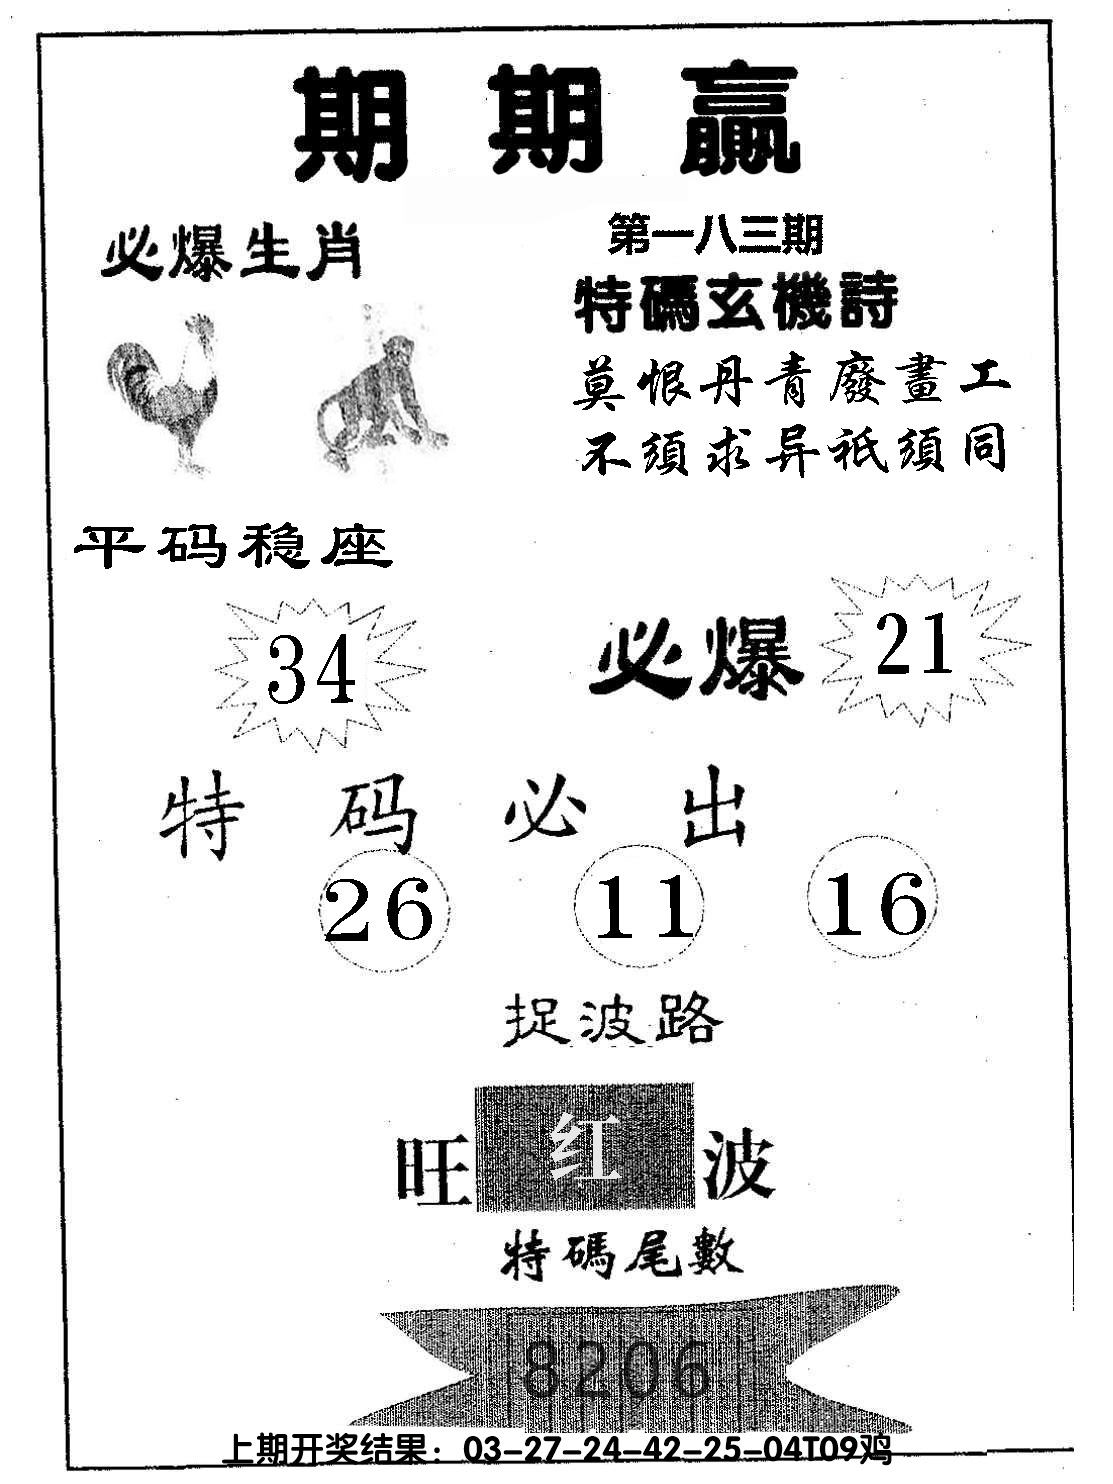 期期贏
必爆生肖
第一八三期
特碼玄機詩
莫恨丹青廢畫工
不須求异祇須同
平码稳座
34
必爆 21
特码必出
26 11 16
捉波路
旺红波
特碼尾數
8206
上期开奖结果：03-27-24-42-25-04T09鸡